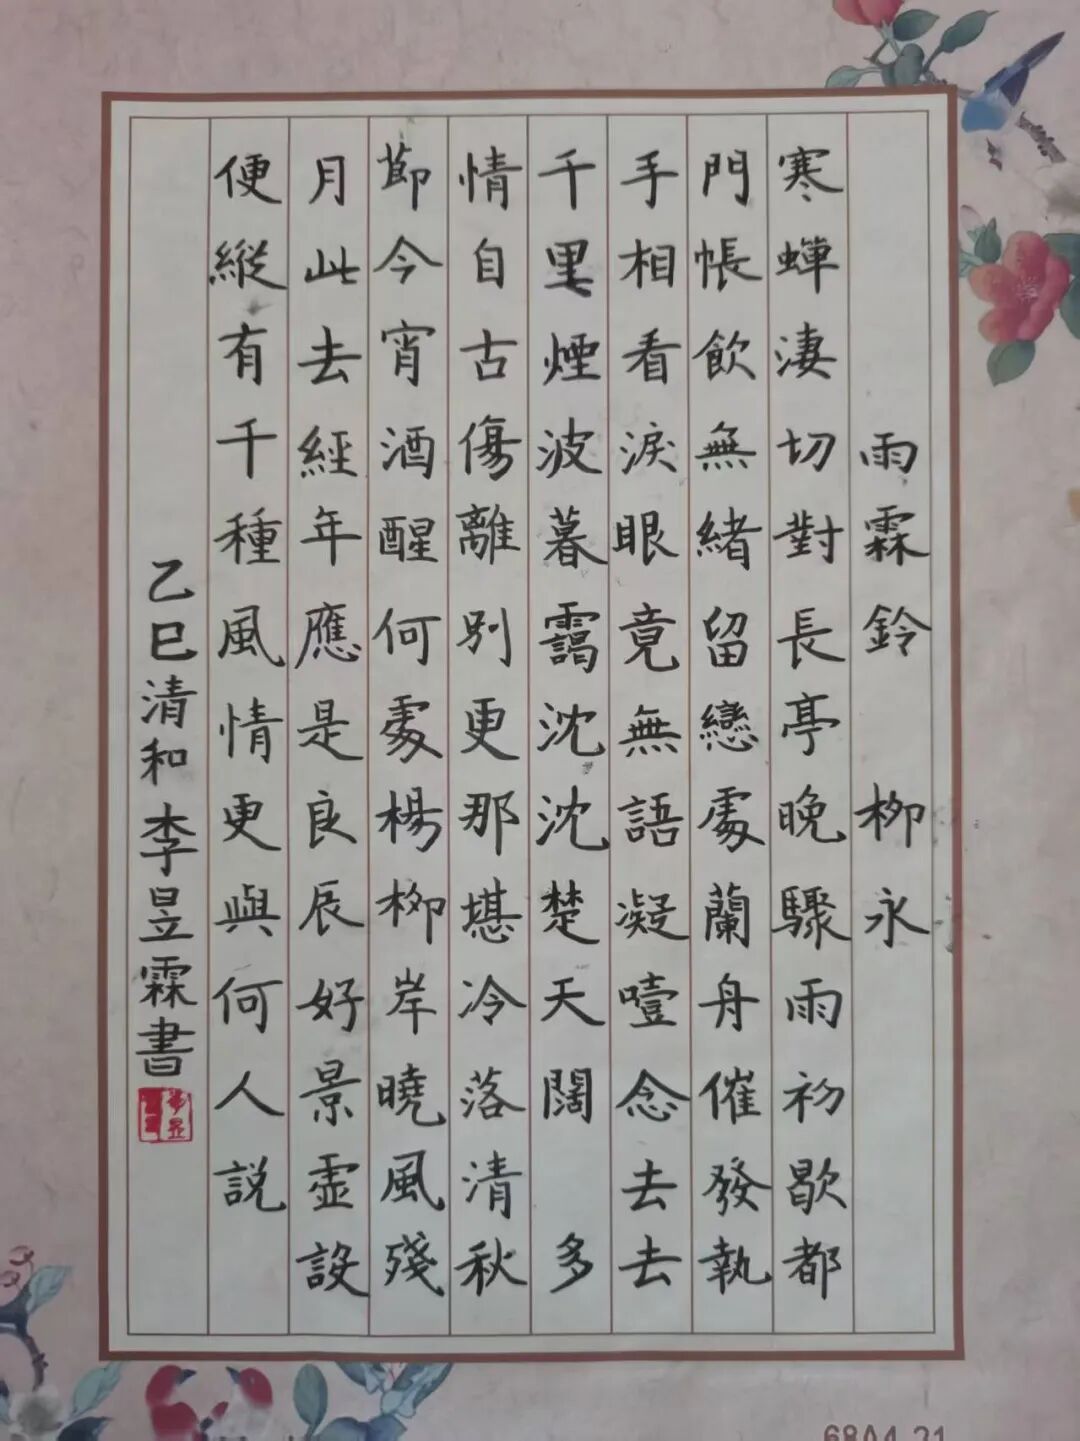 雨霖鈴 柳永
寒蟬淒切對長亭晚驟雨初歇都
門帳飲無緒留戀處蘭舟催發執
手相看淚眼竟無語凝噎念去去
千里煙波暮靄沈沈楚天闊 多
情自古傷離別更那堪冷落清秋
節今宵酒醒何處楊柳岸曉風殘
月此去經年應是良辰好景虛設
便縱有千種風情更與何人說
乙巳清和李昱霖書